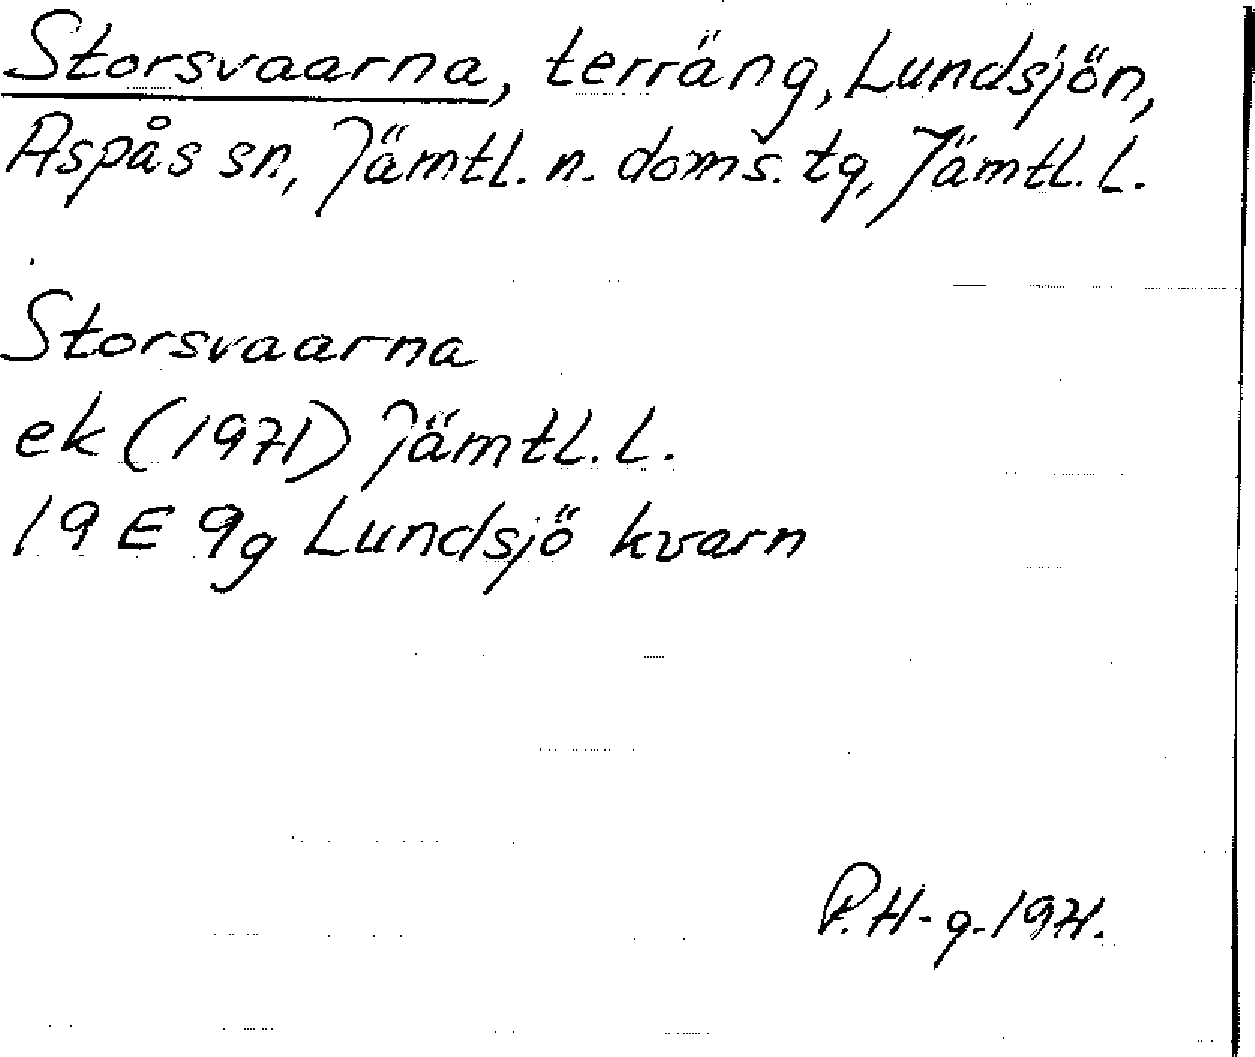 Storsvaarna, terräng, Lundsjön,
Aspås sn, Jämtl. n. doms. tg, Jämtl. l.
Storsvaarna
ek (1971) Jämtl. l.
19 E 9g Lundsjö kvarn
P. H-g. 1971.